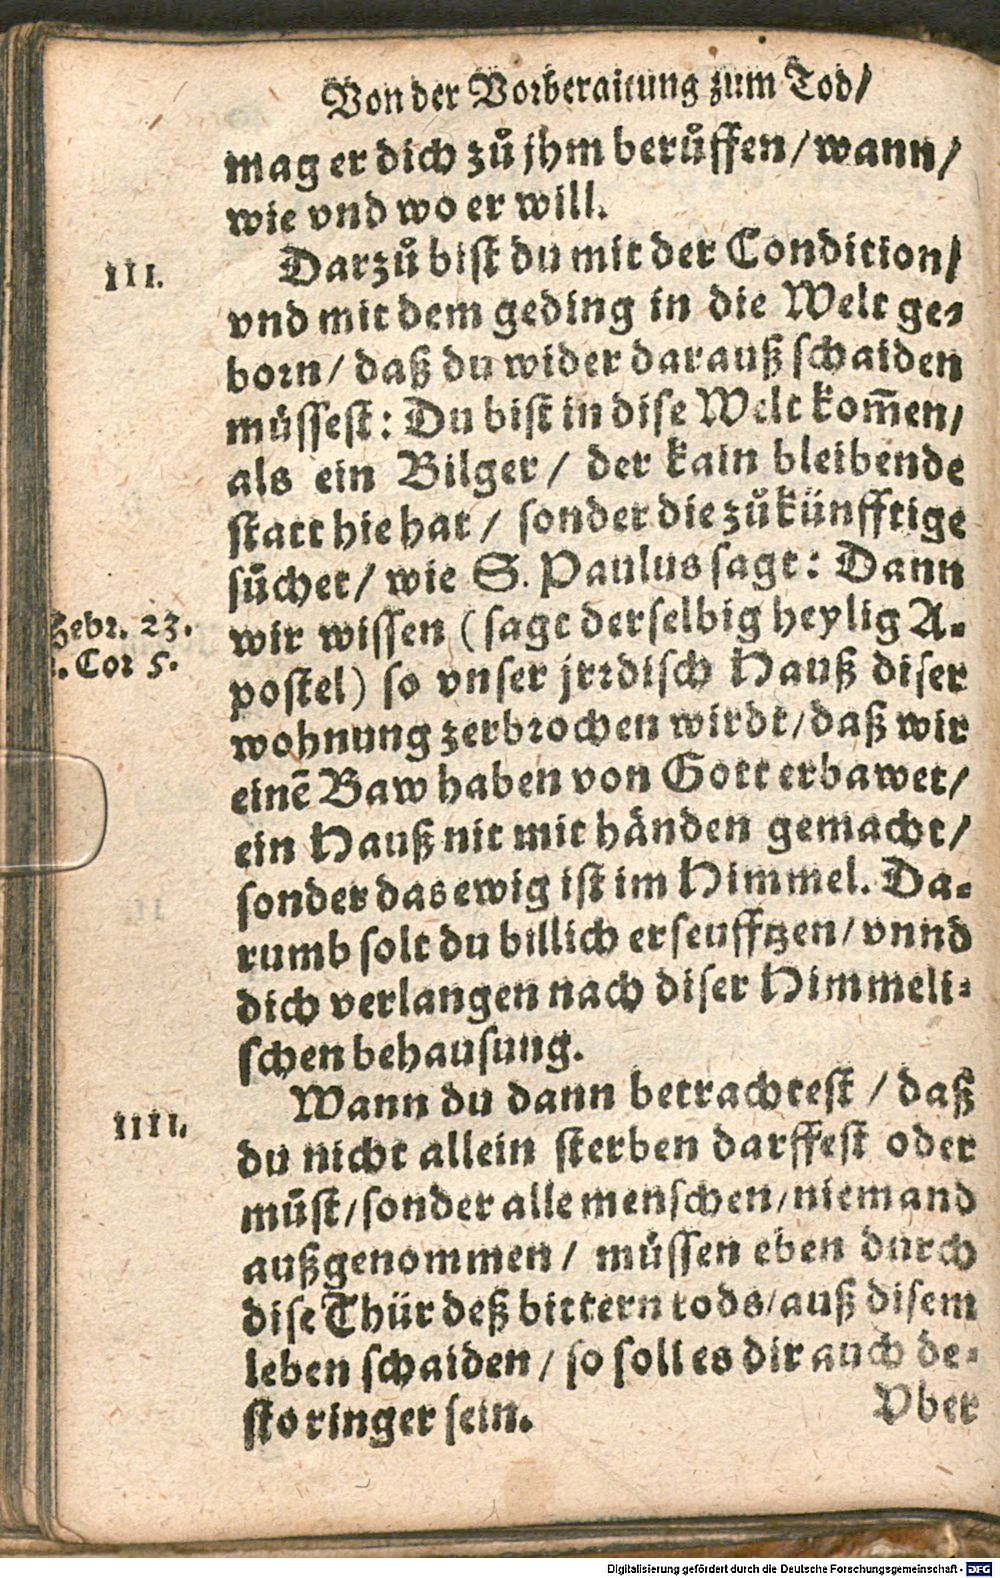 Von der Vorberaitung zum Tod/
mag er dich zů jhm berůffen/ wann/
wie vnd wo er will.
III.
Darzů bist du mit der Condition/
vnd mit dem geding in die Welt ge-
born/ daß du wider darauß schaiden
müssest: Du bist in dise Welt kom̃en/
als ein Bilger/ der kain bleibende
statt hie hat/ sonder die zůkünfftige
sůchet/ wie S. Paulus sagt: Dann
Hebr. 23.
wir wissen (sagt derselbig heylig A-
. Cor 5.
postel) so vnser jrrdisch Hauß diser
wohnung zerbrochen wirdt/ daß wir
einẽ Baw haben von Gott erbawet/
ein Hauß nit mit händen gemacht/
sonder das ewig ist im Himmel. Da-
rumb solt du billich erseufftzen/ vnnd
dich verlangen nach diser Himmeli-
schen behausung.
IIII.
Wann du dann betrachtest/ daß
du nicht allein sterben darffest oder
můst/ sonder alle menschen/ niemand
außgenommen/ můssen eben durch
dise Thür deß bittern tods/ auß disem
leben schaiden/ so soll es dir auch de-
sto ringer sein.
Vber
Digitalisierung gefördert durch die Deutsche Forschungsgemeinschaft - DFG